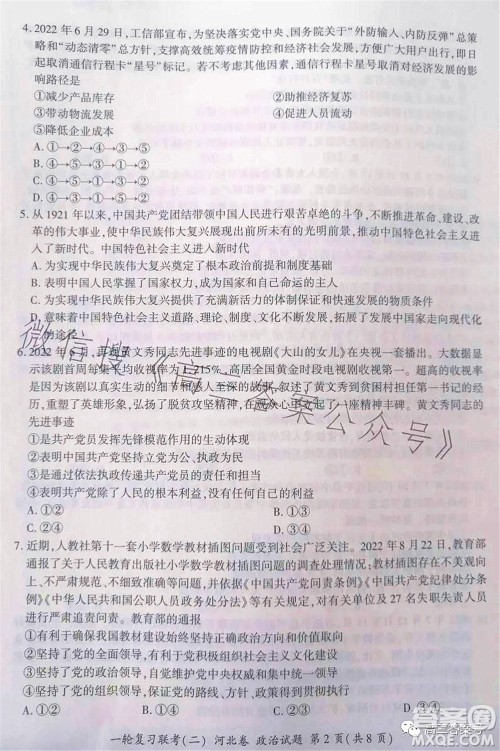 4. 2022 年 6 月 29 日,工信部宣布,为坚决落实党中央、国务院关于“外防输入、内防反弹”总策
略和“动态清零”总方针,支撑高效统筹疫情防控和经济社会发展,方便广大用户出行,即日
起取消通信行程卡“星号”标记。若不考虑其他因素,通信行程卡星号取消对经济发展的影
响路径是
①减少产品库存 ②助推经济复苏
③带动物流发展 ④促进人员流动
⑤降低企业成本
A. ①→②→④→③→⑤
B. ④→③→①→⑤→②
C. ④→⑤→①→③→②
D. ④→⑤→③→①→②
5. 从 1921 年以来,中国共产党团结带领中国人民进行艰苦卓绝的斗争,不断推进革命、建设、改
革的伟大事业,使中华民族伟大复兴展现出前所未有的光明前景,推动中国特色社会主义进
入了新时代。中国特色社会主义进入新时代
A. 为实现中华民族伟大复兴奠定了根本政治前提和制度基础
B. 表明中国人民掌握了国家权力,成为国家和自己命运的主人
C. 为实现中华民族伟大复兴提供了充满新活力的体制保证和快速发展的物质条件
D. 意味着中国特色社会主义道路、理论、制度、文化不断发展,拓展了发展中国家走向现代化
的途径
6. 2022 年 黄文秀同志先进事迹的电视剧《大山的女儿》在央视一套播出。大数据显
示该剧首周每集 1.715%,高居全国黄金时段电视剧收视第一。超高的收视率
是因为该剧以真实生动、感人至深的故事,叙述了黄文秀到贫困村担任第一书记的经
历,重塑了英雄形象,弘扬了脱贫攻坚精神,在民众心里支起了一座精神丰碑。黄文秀同志的
先进事迹
①是共产党员发挥先锋模范作用的生动体现
②表明中国共产党坚持立党为公、执政为民
③是通过依法执政传递共产党员的责任和担当
④表明共产党除了人民的根本利益,没有任何自己的利益
A. ①② B. ①④ C. ②③ D. ③④
7. 近期,人教社第十一套小学数学教材插图问题受到社会广泛关注。2022 年 8 月 22 日,教育部
通报了关于人民教育出版社小学数学教材插图问题的调查处理情况;教材存在不美观向
上、不严肃规范、不细致准确等问题,并依据《中国共产党问责条例》《中国共产党纪律处分条
例》《中华人民共和国公职人员政务处分法》等有关规定,对有关单位及 27 名失职失责人员
进行严肃追责问责。教育部的通报
①有利于确保我国教材建设始终坚持正确政治方向和价值取向
②坚持了党的全面领导,有利于党积极组织社会主义文化建设
③坚持了党的政治领导,自觉维护党中央权威和集中统一领导
④坚持了党的组织领导,保证党的路线、方针、政策得到贯彻落实
A. ①② B. ①③ C. ②④ D. ③④
一轮复习联考(二) 河北卷 政治试题 第 2 页(共 8 页)
微信搜《高三答案公众号》
高三答案
答案圈